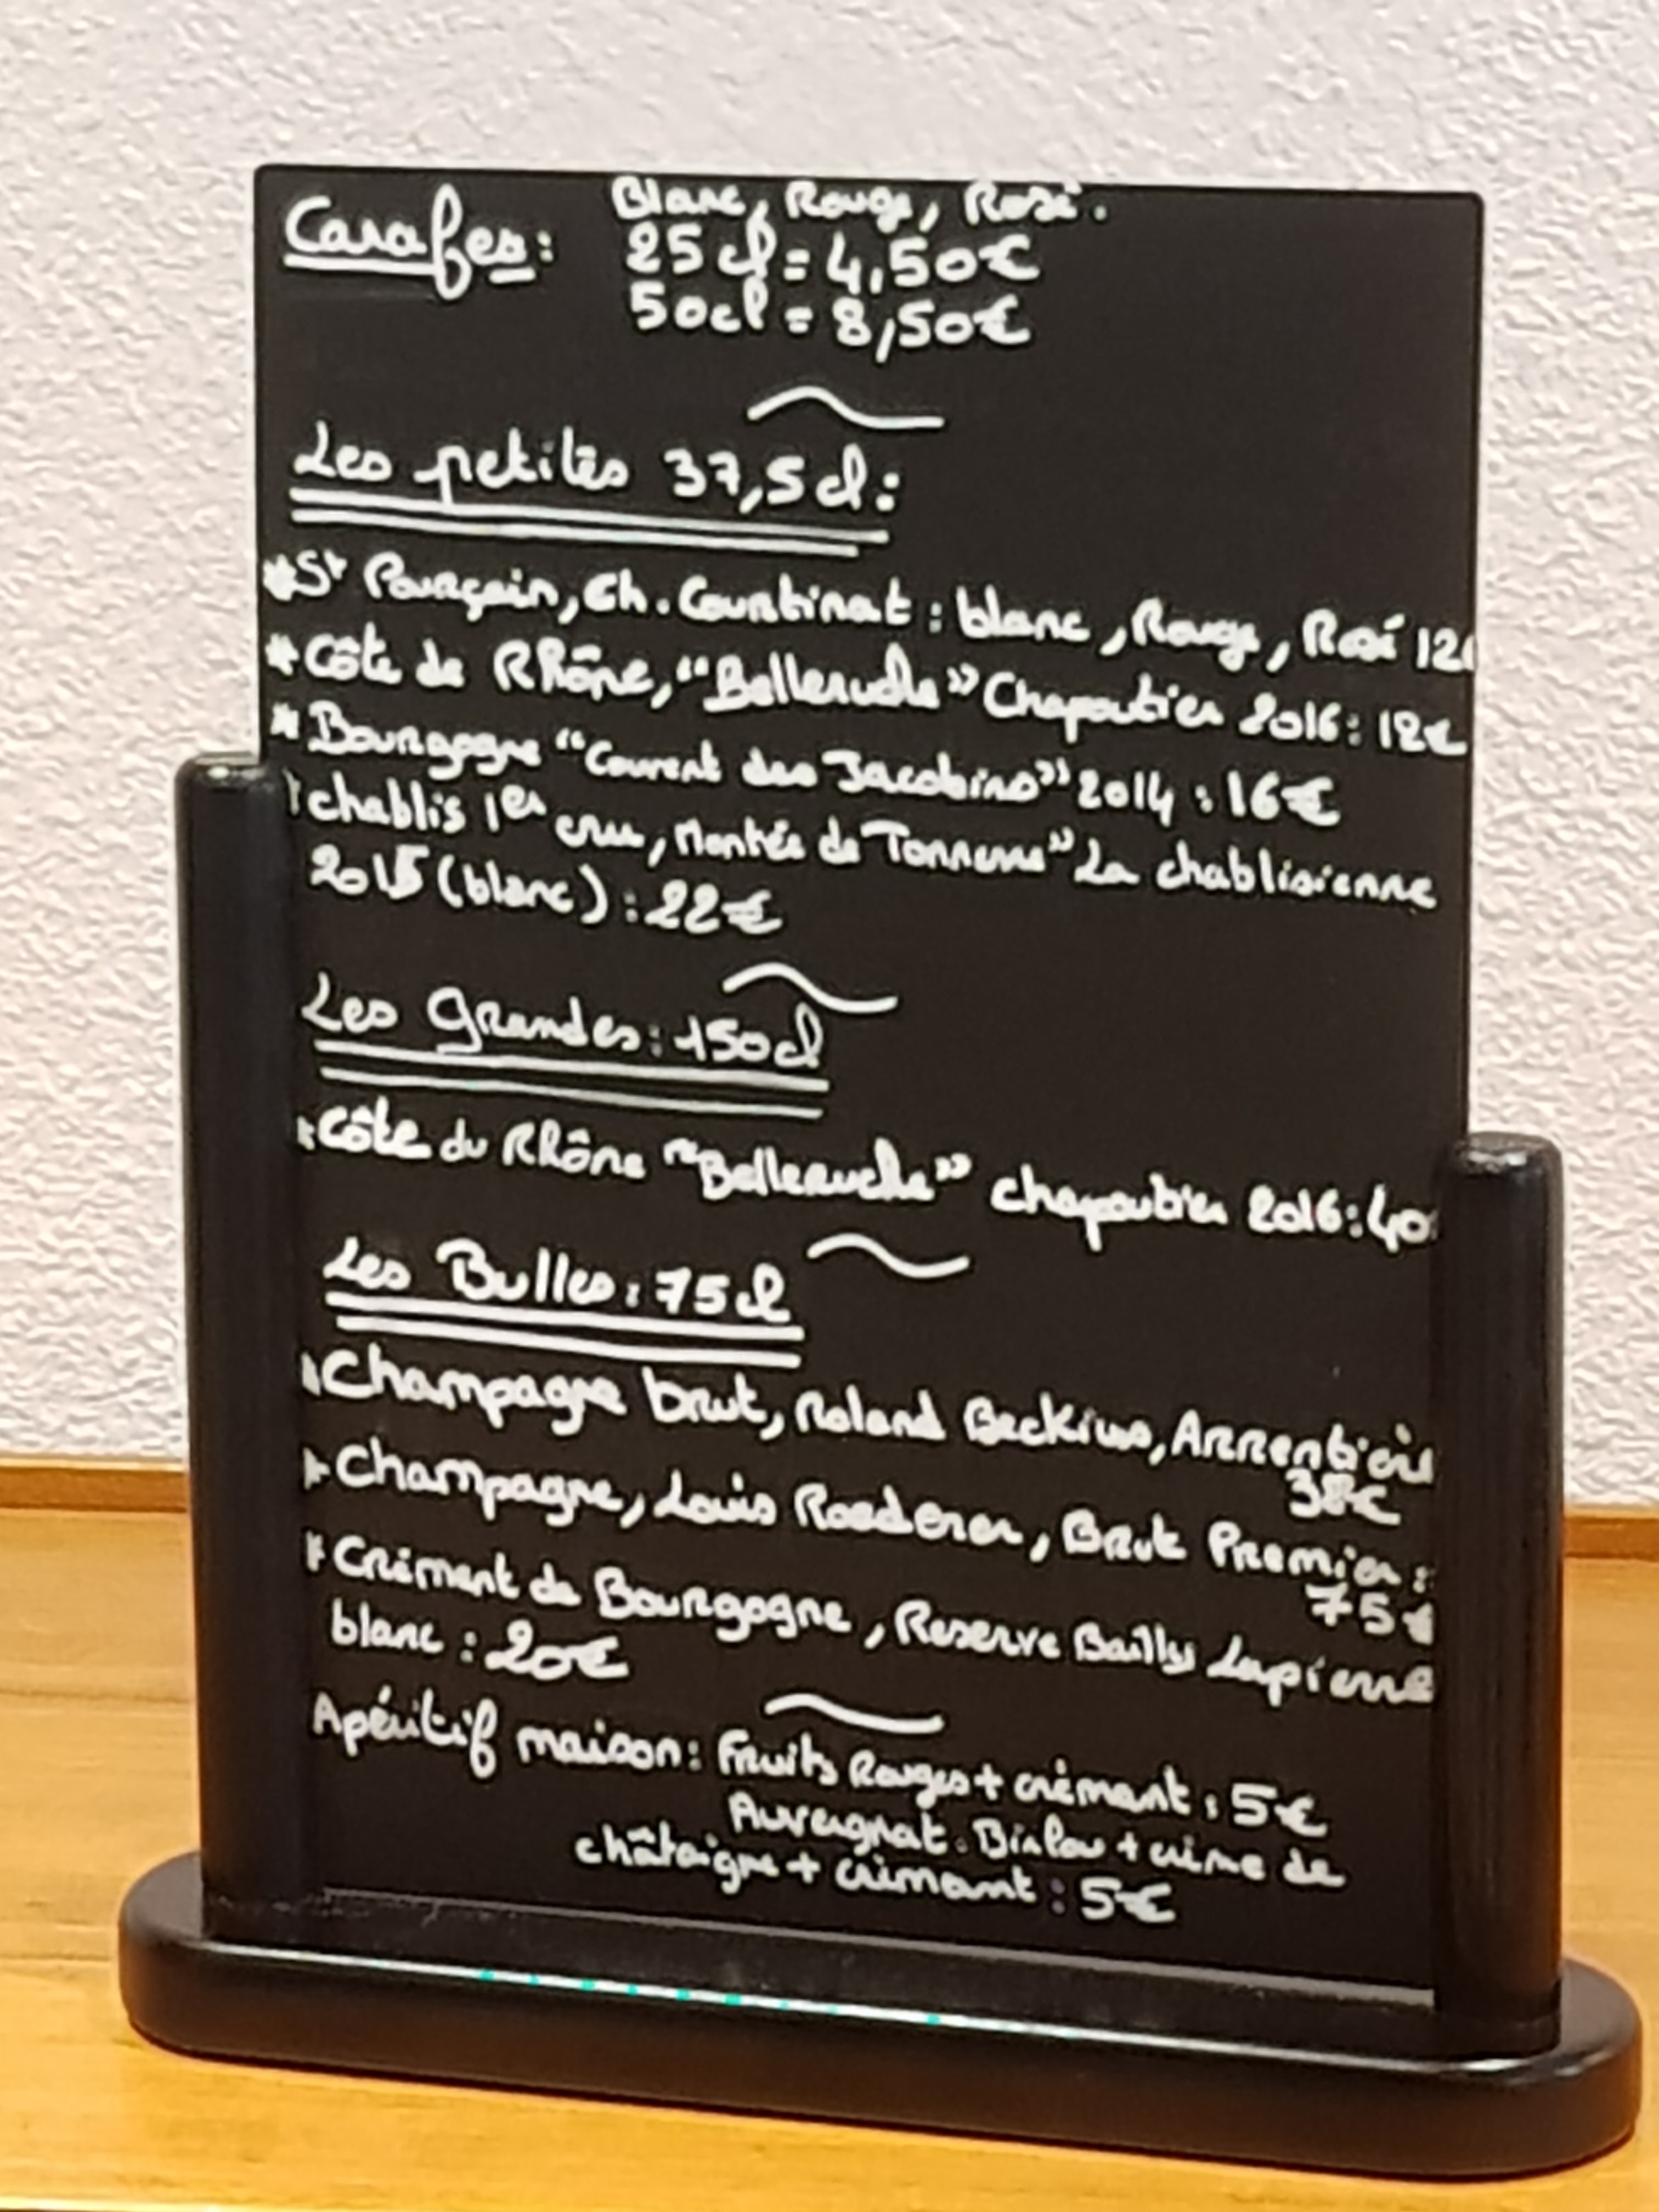 Carafes: Blanc, Rouge, Rosé.
25 cl = 4,50€
50cl = 8,50€
Les petites 37,5 cl:
*St Pourçain, Ch. Courtinat : blanc, Rouge, Rosé 12
*Côte de Rhône, "Belleruche" Chapoutier 2016: 12€
*Bourgogne "Couvent des Jacobins" 2014 : 16€
*chablis 1er cru, Montée de Tonnerre" La chablisienne
2015 (blanc) : 22€
Les Grandes: 150cl
*Côte du Rhône "Belleruche" chapoutier 2016: 40
Les Bulles: 75cl
*Champagne brut, Roland Beckius, Arrentières
38€
*Champagne, Louis Roederer, Brut Premier :
75€
*Crément de Bourgogne, Reserve Bailly Lapierre
blanc : 20€
Apéritif maison: Fruits Rouges + crémant : 5€
Auvergnat: Birlou + crème de
châtaigne + crémant : 5€